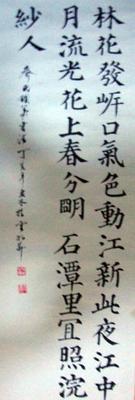 林花發岸口氣色動江新此夜江中
月流光花上春分眀石潭里宜照浣
紗人